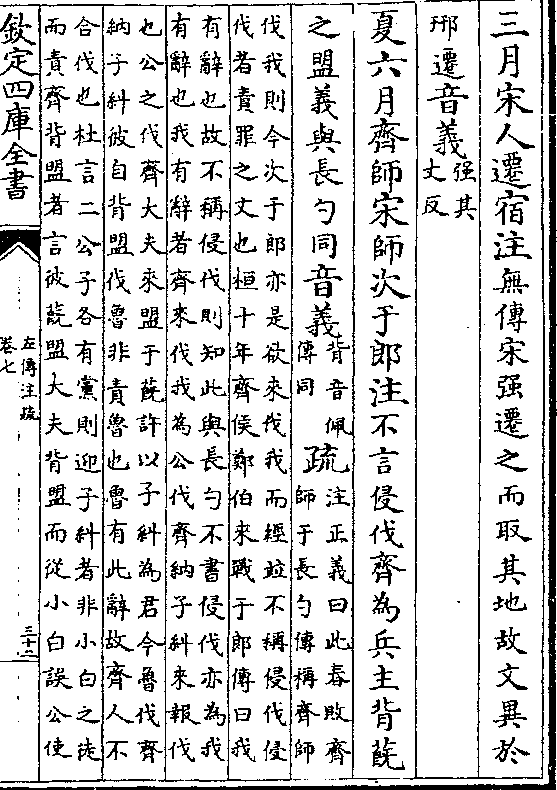 三月宋人遷宿注無傳宋强遷之而取其地故文異於
邢遷音義强其
丈反
夏六月齊師宋師次于郎注不言侵伐齊為兵主背蔇
之盟義與長勺同音義背音佩
傳同
疏注正義曰此春敗齊
師于長勺傳稱齊師
伐我則今次于郎亦是欲來伐我而經竝不稱侵伐侵
伐者責罪之文也桓十年齊侯鄭伯來戰于郎傳曰我
有辭也故不稱侵伐則知此與長勺不書侵伐亦為我
有辭也我有辭者齊來伐我為公伐齊納子糾來報伐
也公之伐齊大夫來盟于蔇許以子糾為君今魯伐齊
納子糾彼自背盟伐魯非責魯也魯有此辭故齊人不
合伐也杜言二公子各有黨則迎子糾者非小白之徒
而責齊背盟者言彼蔇盟大夫背盟而從小白誤公使
欽定四庫全書
左傳注疏
卷七
三十二